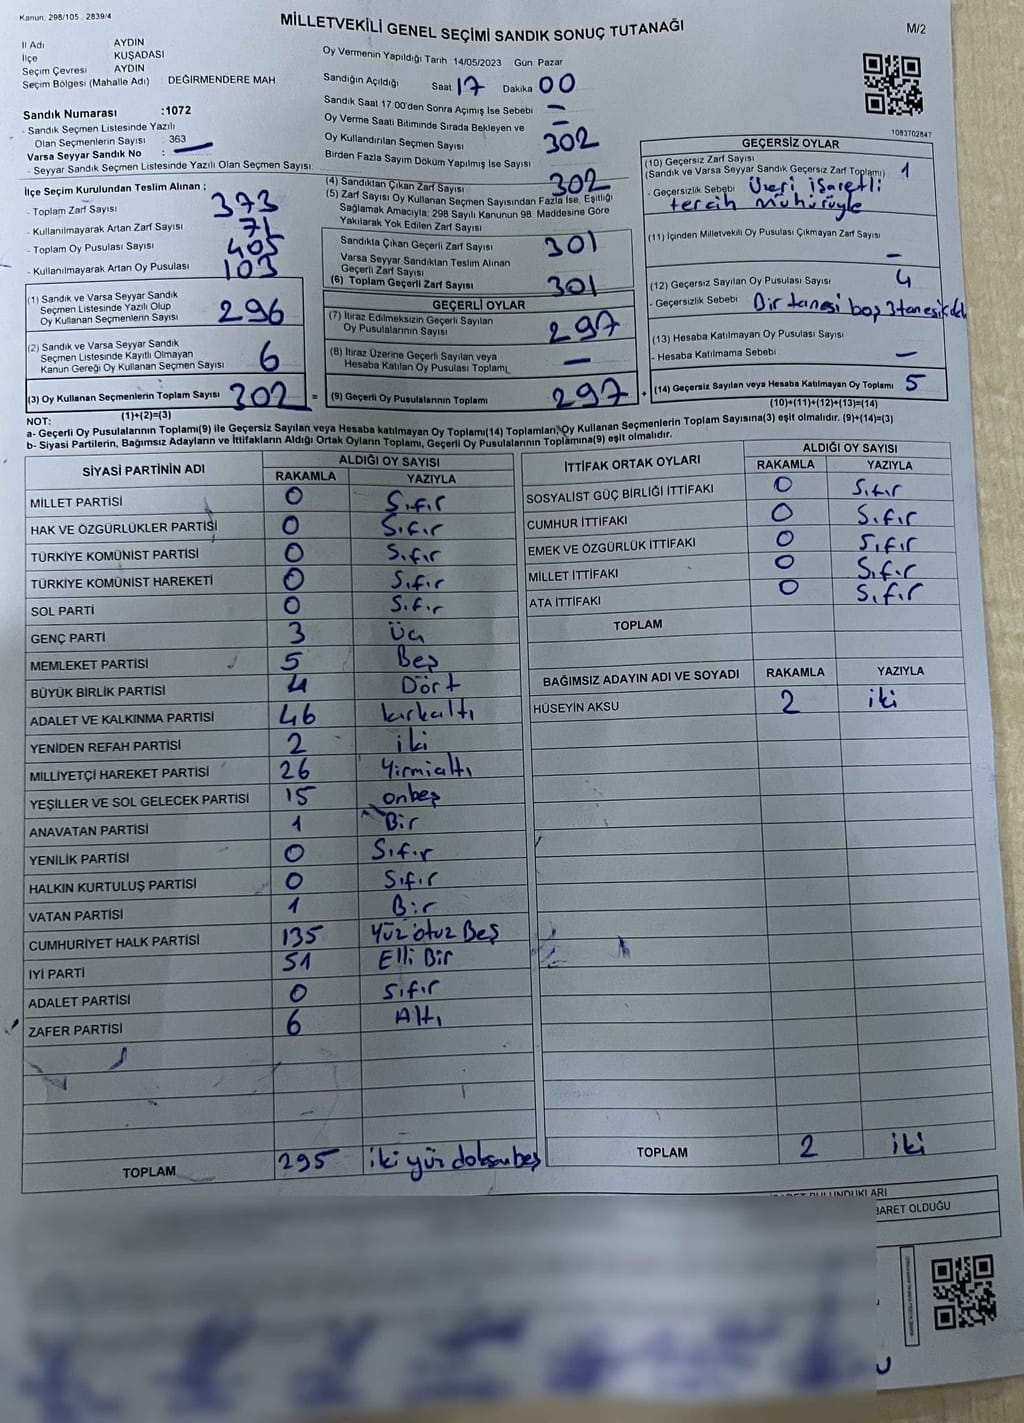 Kanun: 298/105 2839/4
MİLLETVEKİLİ GENEL SEÇİMİ SANDIK SONUÇ TUTANAĞI
M/2
İl Adı AYDIN
İlçe KUŞADASI
Seçim Çevresi AYDIN
Seçim Bölgesi (Mahalle Adı) DEĞİRMENDERE MAH.
Sandık Numarası :1072
- Sandık Seçmen Listesinde Yazılı
Olan Seçmenlerin Sayısı : 363
Varsa Seyyar Sandık No : —
- Seyyar Sandık Seçmen Listesinde Yazılı Olan Seçmen Sayısı:
Oy Vermenin Yapıldığı Tarih : 14/05/2023 Gün Pazar
Sandığın Açıldığı Saat 17 Dakika 00
Sandık Saat 17.00'den Sonra Açımış İse Sebebi —
Oy Verme Saati Bitiminde Sırada Bekleyen ve —
Oy Kullandırılan Seçmen Sayısı 302
Birden Fazla Sayım Döküm Yapılmış İse Sayısı
1083702847
İlçe Seçim Kurulundan Teslim Alınan ;
- Toplam Zarf Sayısı 373
- Kullanılmayarak Artan Zarf Sayısı 71
- Toplam Oy Pusulası Sayısı 405
- Kullanılmayarak Artan Oy Pusulası 103
(1) Sandık ve Varsa Seyyar Sandık
Seçmen Listesinde Yazılı Olup
Oy Kullanan Seçmenlerin Sayısı 296
(2) Sandık ve Varsa Seyyar Sandık
Seçmen Listesinde Kayıtlı Olmayan
Kanun Gereği Oy Kullanan Seçmen Sayısı 6
(3) Oy Kullanan Seçmenlerin Toplam Sayısı 302 =
(1)+(2)=(3)
(4) Sandıktan Çıkan Zarf Sayısı 302
(5) Zarf Sayısı Oy Kullanan Seçmen Sayısından Fazla İse, Eşitliği
Sağlamak Amacıyla; 298 Sayılı Kanunun 98. Maddesine Göre
Yakılarak Yok Edilen Zarf Sayısı
Sandıkta Çıkan Geçerli Zarf Sayısı 301
Varsa Seyyar Sandıktan Teslim Alınan
Geçerli Zarf Sayısı
(6) Toplam Geçerli Zarf Sayısı 301
GEÇERLİ OYLAR
(7) İtiraz Edilmeksizin Geçerli Sayılan
Oy Pusulalarının Sayısı 297
(8) İtiraz Üzerine Geçerli Sayılan veya
Hesaba Katılan Oy Pusulası Toplamı —
(9) Geçerli Oy Pusulalarının Toplamı 297 +
GEÇERSİZ OYLAR
(10) Geçersiz Zarf Sayısı
(Sandık ve Varsa Seyyar Sandık Geçersiz Zarf Toplamı) 1
- Geçersizlik Sebebi Üzeri işaretli
tercih mühürüyle
(11) İçinden Milletvekili Oy Pusulası Çıkmayan Zarf Sayısı
—
(12) Geçersiz Sayılan Oy Pusulası Sayısı 4
- Geçersizlik Sebebi Bir tanesi boş 3 tanesi
(13) Hesaba Katılmayan Oy Pusulası Sayısı
- Hesaba Katılmama Sebebi —
(14) Geçersiz Sayılan veya Hesaba Katılmayan Oy Toplamı 5
(10)+(11)+(12)+(13)=(14)
NOT:
a- Geçerli Oy Pusulalarının Toplamı(9) ile Geçersiz Sayılan veya Hesaba katılmayan Oy Toplamı(14) Toplamları, Oy Kullanan Seçmenlerin Toplam Sayısına(3) eşit olmalıdır. (9)+(14)=(3)
b- Siyasi Partilerin, Bağımsız Adayların ve İttifakların Aldığı Ortak Oyların Toplamı, Geçerli Oy Pusulalarının Toplamına(9) eşit olmalıdır.
SİYASİ PARTİNİN ADI ALDIĞI OY SAYISI
RAKAMLA YAZIYLA
MİLLET PARTİSİ 0 Sıfır
HAK VE ÖZGÜRLÜKLER PARTİSİ 0 Sıfır
TÜRKİYE KOMÜNİST PARTİSİ 0 Sıfır
TÜRKİYE KOMÜNİST HAREKETİ 0 Sıfır
SOL PARTİ 0 Sıfır
GENÇ PARTİ 3 Üç
MEMLEKET PARTİSİ 5 Beş
BÜYÜK BİRLİK PARTİSİ 4 Dört
ADALET VE KALKINMA PARTİSİ 46 kırkaltı
YENİDEN REFAH PARTİSİ 2 iki
MİLLİYETÇİ HAREKET PARTİSİ 26 Yirmialtı
YEŞİLLER VE SOL GELECEK PARTİSİ 15 onbeş
ANAVATAN PARTİSİ 1 Bir
YENİLİK PARTİSİ 0 Sıfır
HALKIN KURTULUŞ PARTİSİ 0 Sıfır
VATAN PARTİSİ 1 Bir
CUMHURİYET HALK PARTİSİ 135 Yüz otuz Beş
İYİ PARTİ 51 Elli Bir
ADALET PARTİSİ 0 Sıfır
ZAFER PARTİSİ 6 Altı
TOPLAM 295 iki yüz doksan beş
İTTİFAK ORTAK OYLARI ALDIĞI OY SAYISI
RAKAMLA YAZIYLA
SOSYALİST GÜÇ BİRLİĞİ İTTİFAKI 0 Sıfır
CUMHUR İTTİFAKI 0 Sıfır
EMEK VE ÖZGÜRLÜK İTTİFAKI 0 Sıfır
MİLLET İTTİFAKI 0 Sıfır
ATA İTTİFAKI 0 Sıfır
TOPLAM
BAĞIMSIZ ADAYIN ADI VE SOYADI RAKAMLA YAZIYLA
HÜSEYİN AKSU 2 iki
TOPLAM 2 iki
BARET OLDUĞU